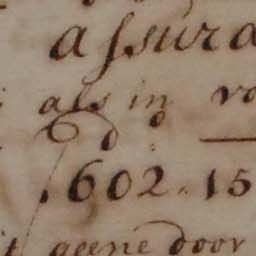 assura
als in vo
602.15
geene door